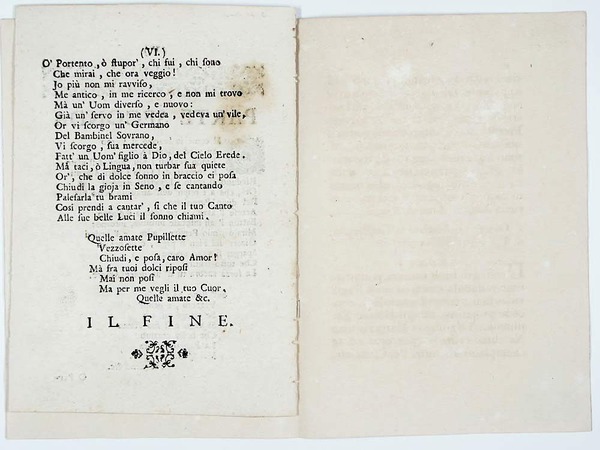 (VI.)
O' Portento, ò ſtupor', chi fui, chi ſono
Che mirai, che ora veggio!
Jo più non mi ravviſo,
Me antico, in me ricerco, e non mi trovo
Mà un' Uom diverſo, e nuovo:
Già un' ſervo in me vedea, vedeva un' vile,
Or vi ſcorgo un' Germano
Del Bambinel Sovrano,
Vi ſcorgo, ſua mercede,
Fatt' un Uom' figlio à Dio, del Cielo Erede.
Mà taci, ò Lingua, non turbar ſua quiete
Or', che di dolce ſonno in braccio ei poſa
Chiudi la gioja in Seno, e ſe cantando
Paleſarla tu brami
Cosi prendi a cantar', ſi che il tuo Canto
Alle ſue belle Luci il ſonno chiami.
Quelle amate Pupillette
Vezzoſette
Chiudi, e poſa, caro Amor!
Mà fra tuoi dolci ripoſi
Mai non poſi
Ma per me vegli il tuo Cuor.
Quelle amate &c.
IL FINE.